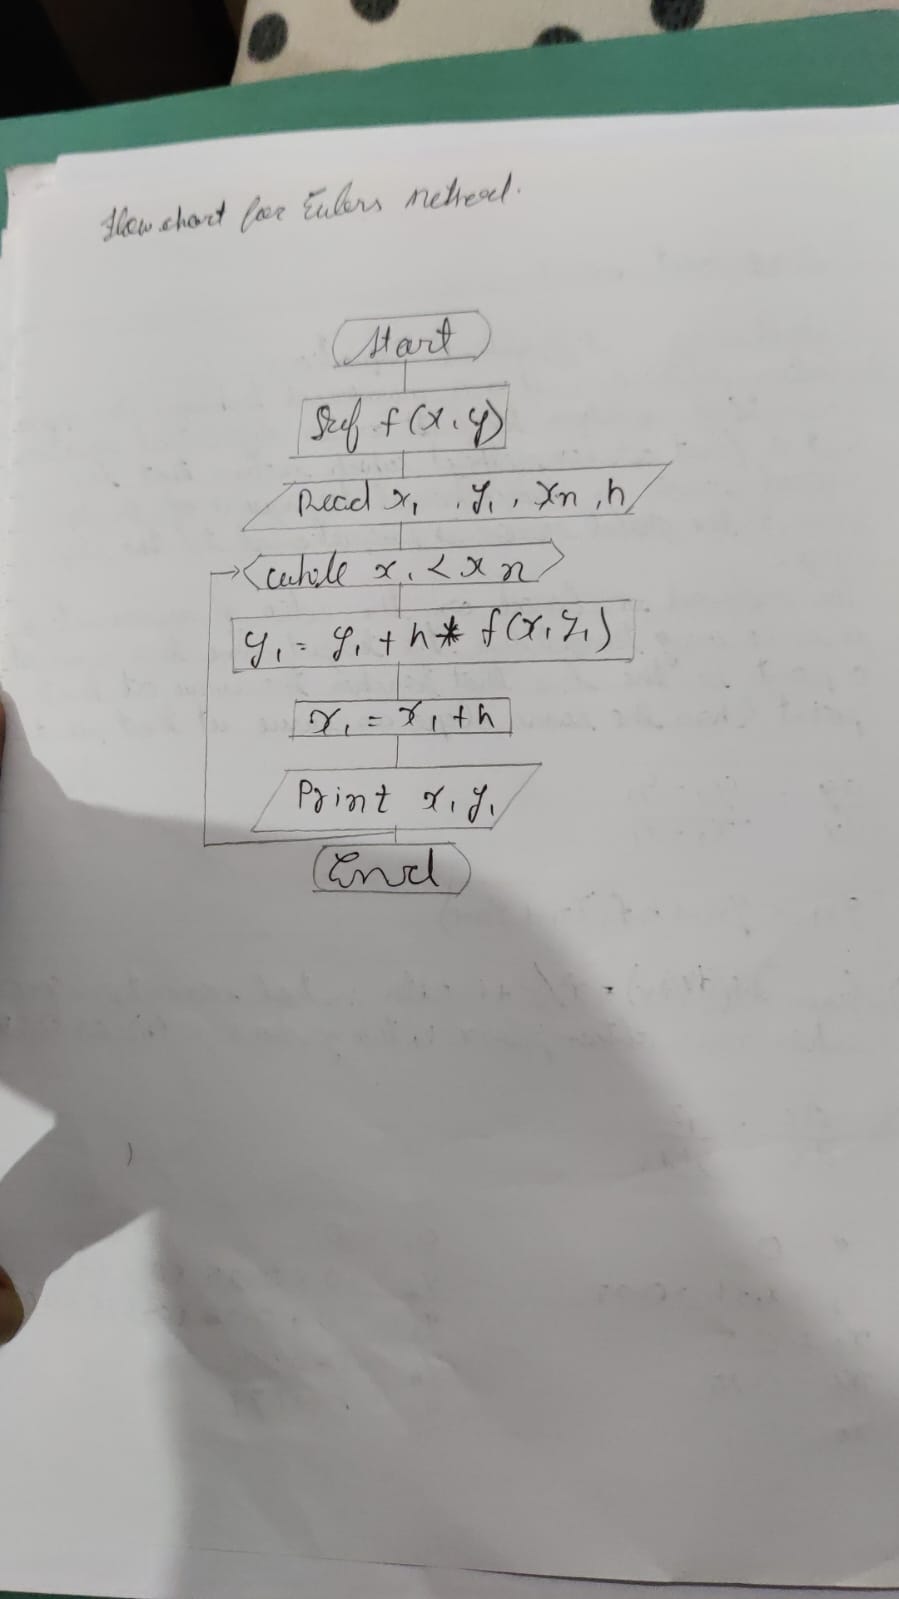 Flow chart for Eulers Method.
Start
Def f(x, y)
Read x1, y1, xn, h
while x1 < xn
y1 = y1 + h* f(x1 y1)
x1 = x1 + h
Print x1 y1
End